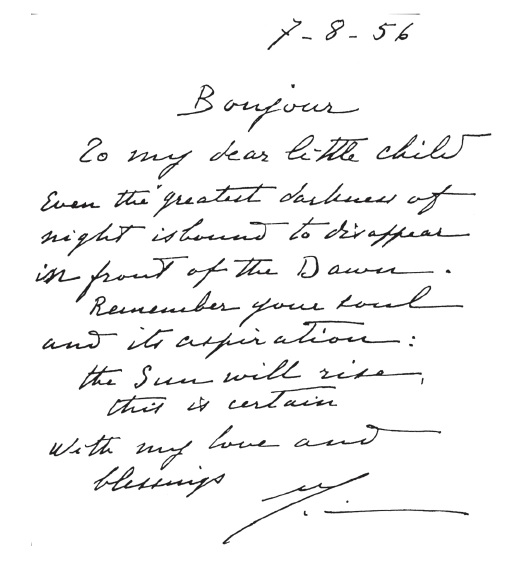 7-8-56
Bonjour
To my dear little child
Even the greatest darkness of
night is bound to disappear
in front of the Dawn.
Remember your soul
and its aspiration:
the Sun will rise,
this is certain
With my love and
blessings